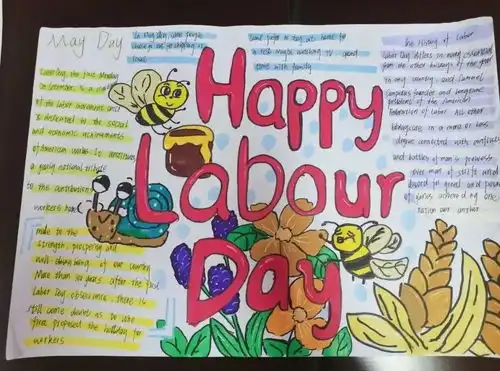 May Day
In May Day some people
choose to go shopping or
travel
Some prefer to stay at home for
a rest maybe washing is good
time with family
The history of Labor
Happy
Labour
Day
Labor Day, the first Monday
in September, is a
of the labor movement and
is dedicated to the social
and economic achievements
of American workers. It constitutes
a yearly national tribute
to the contributions
workers have
made to the
strength, prosperity and
well-being of our country
More than 100 years after the first
Labor Day observance, there is
still some doubt as to who
first proposed the holiday for
workers
Labor Day differs in every essential
from the other holidays of the year
in any country said Samuel
Gompers founder and longtime
president of the American
Federation of Labor All other
holidays in a more or less
degree connected with conflicts
and battles of man's prowess
over man of strife and
discord for greed and power
of glories achieved by one
nation over another